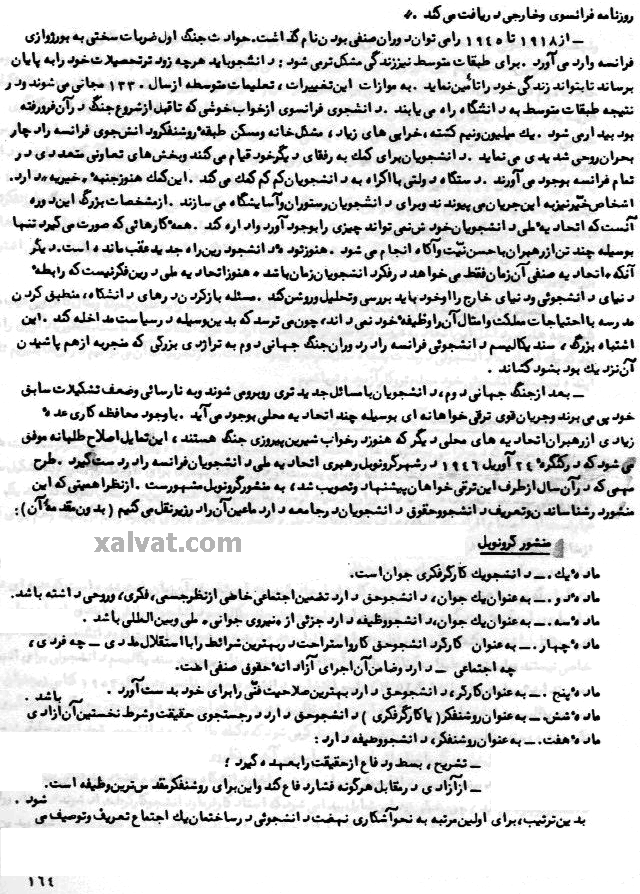 روزنامه فرانسوی وخارجی دریافت می کند .
ــ از ۱۹۱۸ تا ۱۹٤٥ رامی توان دوران صنفی بودن نام گذاشت.حوادث جنگ اول ضربات سختی به بورژوازی
فرانسه وارد می آورد . برای طبقات متوسط نیز زندگی مشکل ترمی شود : دانشجوباید هرچه زود ترتحصیلات خود رابه پایان
برساند تابتواند زندگی خود راتأمین نماید . به موازات این تغییرات ، تعلیمات متوسطه ازسال ۱۹۳۰ مجانی می شوند ودر
نتیجه طبقات متوسط به دانشگاه راه می یابند . دانشجوی فرانسوی ازخواب خوشی که تاقبل ازشروع جنگ درآن فرورفته
بود بیدارمی شود . یك میلیون ونیم کشته ، خرابی های زیاد ، مشکل خانه ومسکن طبقه روشنفکرودانشجوی فرانسه راد چار
بحران روحی شدیدی می نماید . دانشجویان برای کمك به رفقای دیگرخود قیام می کنند وبخش های تعاونی متعددی در
تمام فرانسه بوجود می آورند . دستگاه دولتی بااکراه به دانشجویان کم کم کمك می کند . این کمك هنوزجنبه "خیریه" دارد.
اشخاص خیّرنیزبه این جریان می پیوند ند وبرای دانشجویان رستوران وآسایشگاه می سازند . ازمشخصات بزرگ این دوره
آنست که اتحادیه ملی دانشجویان خودش نمی تواند چیزی رابوجود آورد واداره کند . همه کارهائی که صورت می گیرد تنها
بوسیله چند تن ازرهبران باحسن نیّت وآگاه انجام می شود . هنوزتوده دانشجود رین راه جدید عقب مانده است. دیگر
آنکه اتحادیه صنفی آن زمان فقط می خواهد درفکرد انشجویان زمان باشد . هنوزاتحادیه ملی درین فکرنیست که رابطه
دنیای دانشجوئی ودنیای خارج رااوخود باید بررسی وتحلیل وروشن کند . مسئله بازکردن درهای دانشگاه، منطبق کردن
مدرسه بااحتیاجات مملکت وامثال آن راوظیفه خود نمی داند، چون می ترسد که بدین وسیله درسیاست مداخله کند . این
اشتباه بزرگ ، سندیکالیسم دانشجوئی فرانسه راد ردوران جنگ جهانی دوم به تراژدی بزرگی که منجربه ازهم پاشیدن
آن نزدیك بود بشود کشاند .
ــ بعد ازجنگ جهانی دوم ، دانشجویان بامسائل جدیدتری روبرومی شوند وبه نارسائی وضعف تشکیلات سابق
خود پی می برند وجریان قوی ترقی خواهانه ای بوسیله چند اتحادیه محلی بوجود می آید . باوجود محافظه کاری عده
زیادی ازرهبران اتحادیه های محلی دیگر که هنوزد رخواب شیرین پیروزی جنگ هستند ، این تمایل اصلاح طلبانه موفق
می شود که درکنگره ۲٤ آوریل ۱۹٤٦ درشهرگرونوبل رهبری اتحادیه ملی دانشجویان فرانسه راد ردست گیرد . طرح
مهمی که درآن سال ازطرف این ترقی خواهان پیشنهاد وتصویب شد ، به منشورگرونوبل مشهورست . ازنظراهمیتی که این
منشورد رشناساندن وتعریف دانشجووحقوق دانشجویان درجامعه دارد ماعین آن راد رزیرنقل می کنیم ( بدون مقدمه آن ) :
xalvat.com
منشور گرونوبل
ماده یك . ــ دانشجویك کارگرفکری جوان است.
ماده دو . ــ به عنوان یك جوان، دانشجوحق دارد تضمین اجتماعی خاصی ازنظرجسمی، فکری، وروحی داشته باشد.
ماده سه . ــ به عنوان یك جوان، دانشجووظیفه دارد جزئی از "نیروی جوانی" ملی وبین المللی باشد .
ماده چهار . ــ به عنوان کارگرد انشجوحق کارواستراحت دربهترین شرائط راباا ستقلال مادی ــ چه فردی ،
چه اجتماعی ــ دارد وضامن آن اجرای آزادانه حقوق صنفی است.
ماده پنج . ــ به عنوان کارگر، دانشجوحق دارد بهترین صلاحیت فنّی رابرای خود بدست آورد .
ماده شش. ــ به عنوان روشنفکر( یاکارگرفکری ) دانشجوحق دارد درجستجوی حقیقت وشرط نخستین آن آزادی باشد .
ماده هفت. ــ به عنوان روشنفکر، دانشجووظیفه دارد :
ــ تشریح ، بسط ودفاع ازحقیقت رابعهده گیرد ؛
ــ ازآزادی درمقابل هرگونه فشاردفاع کند واین برای روشنفکرمقدس ترین وظیفه است.
بدین ترتیب، برای اولین مرتبه به نحوآشکاری نهضت دانشجوئی درساختمان یك اجتماع تعریف وتوصیف می شود .
۱٦٤